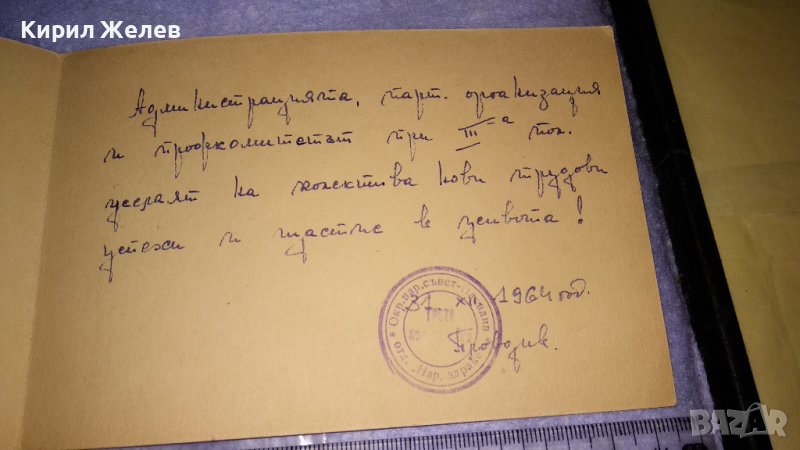 Кирил Желев
Администрацията, парт. организация
и профкомитетът при III-а пол.
желаят на колектива нови трудови
успехи и щастие в живота!
Окр. нар. съвет - Пловдив
31 XII 1964 год.
ТРЕТА
Пловдив.
отд. „Нар. здраве
BAZAR